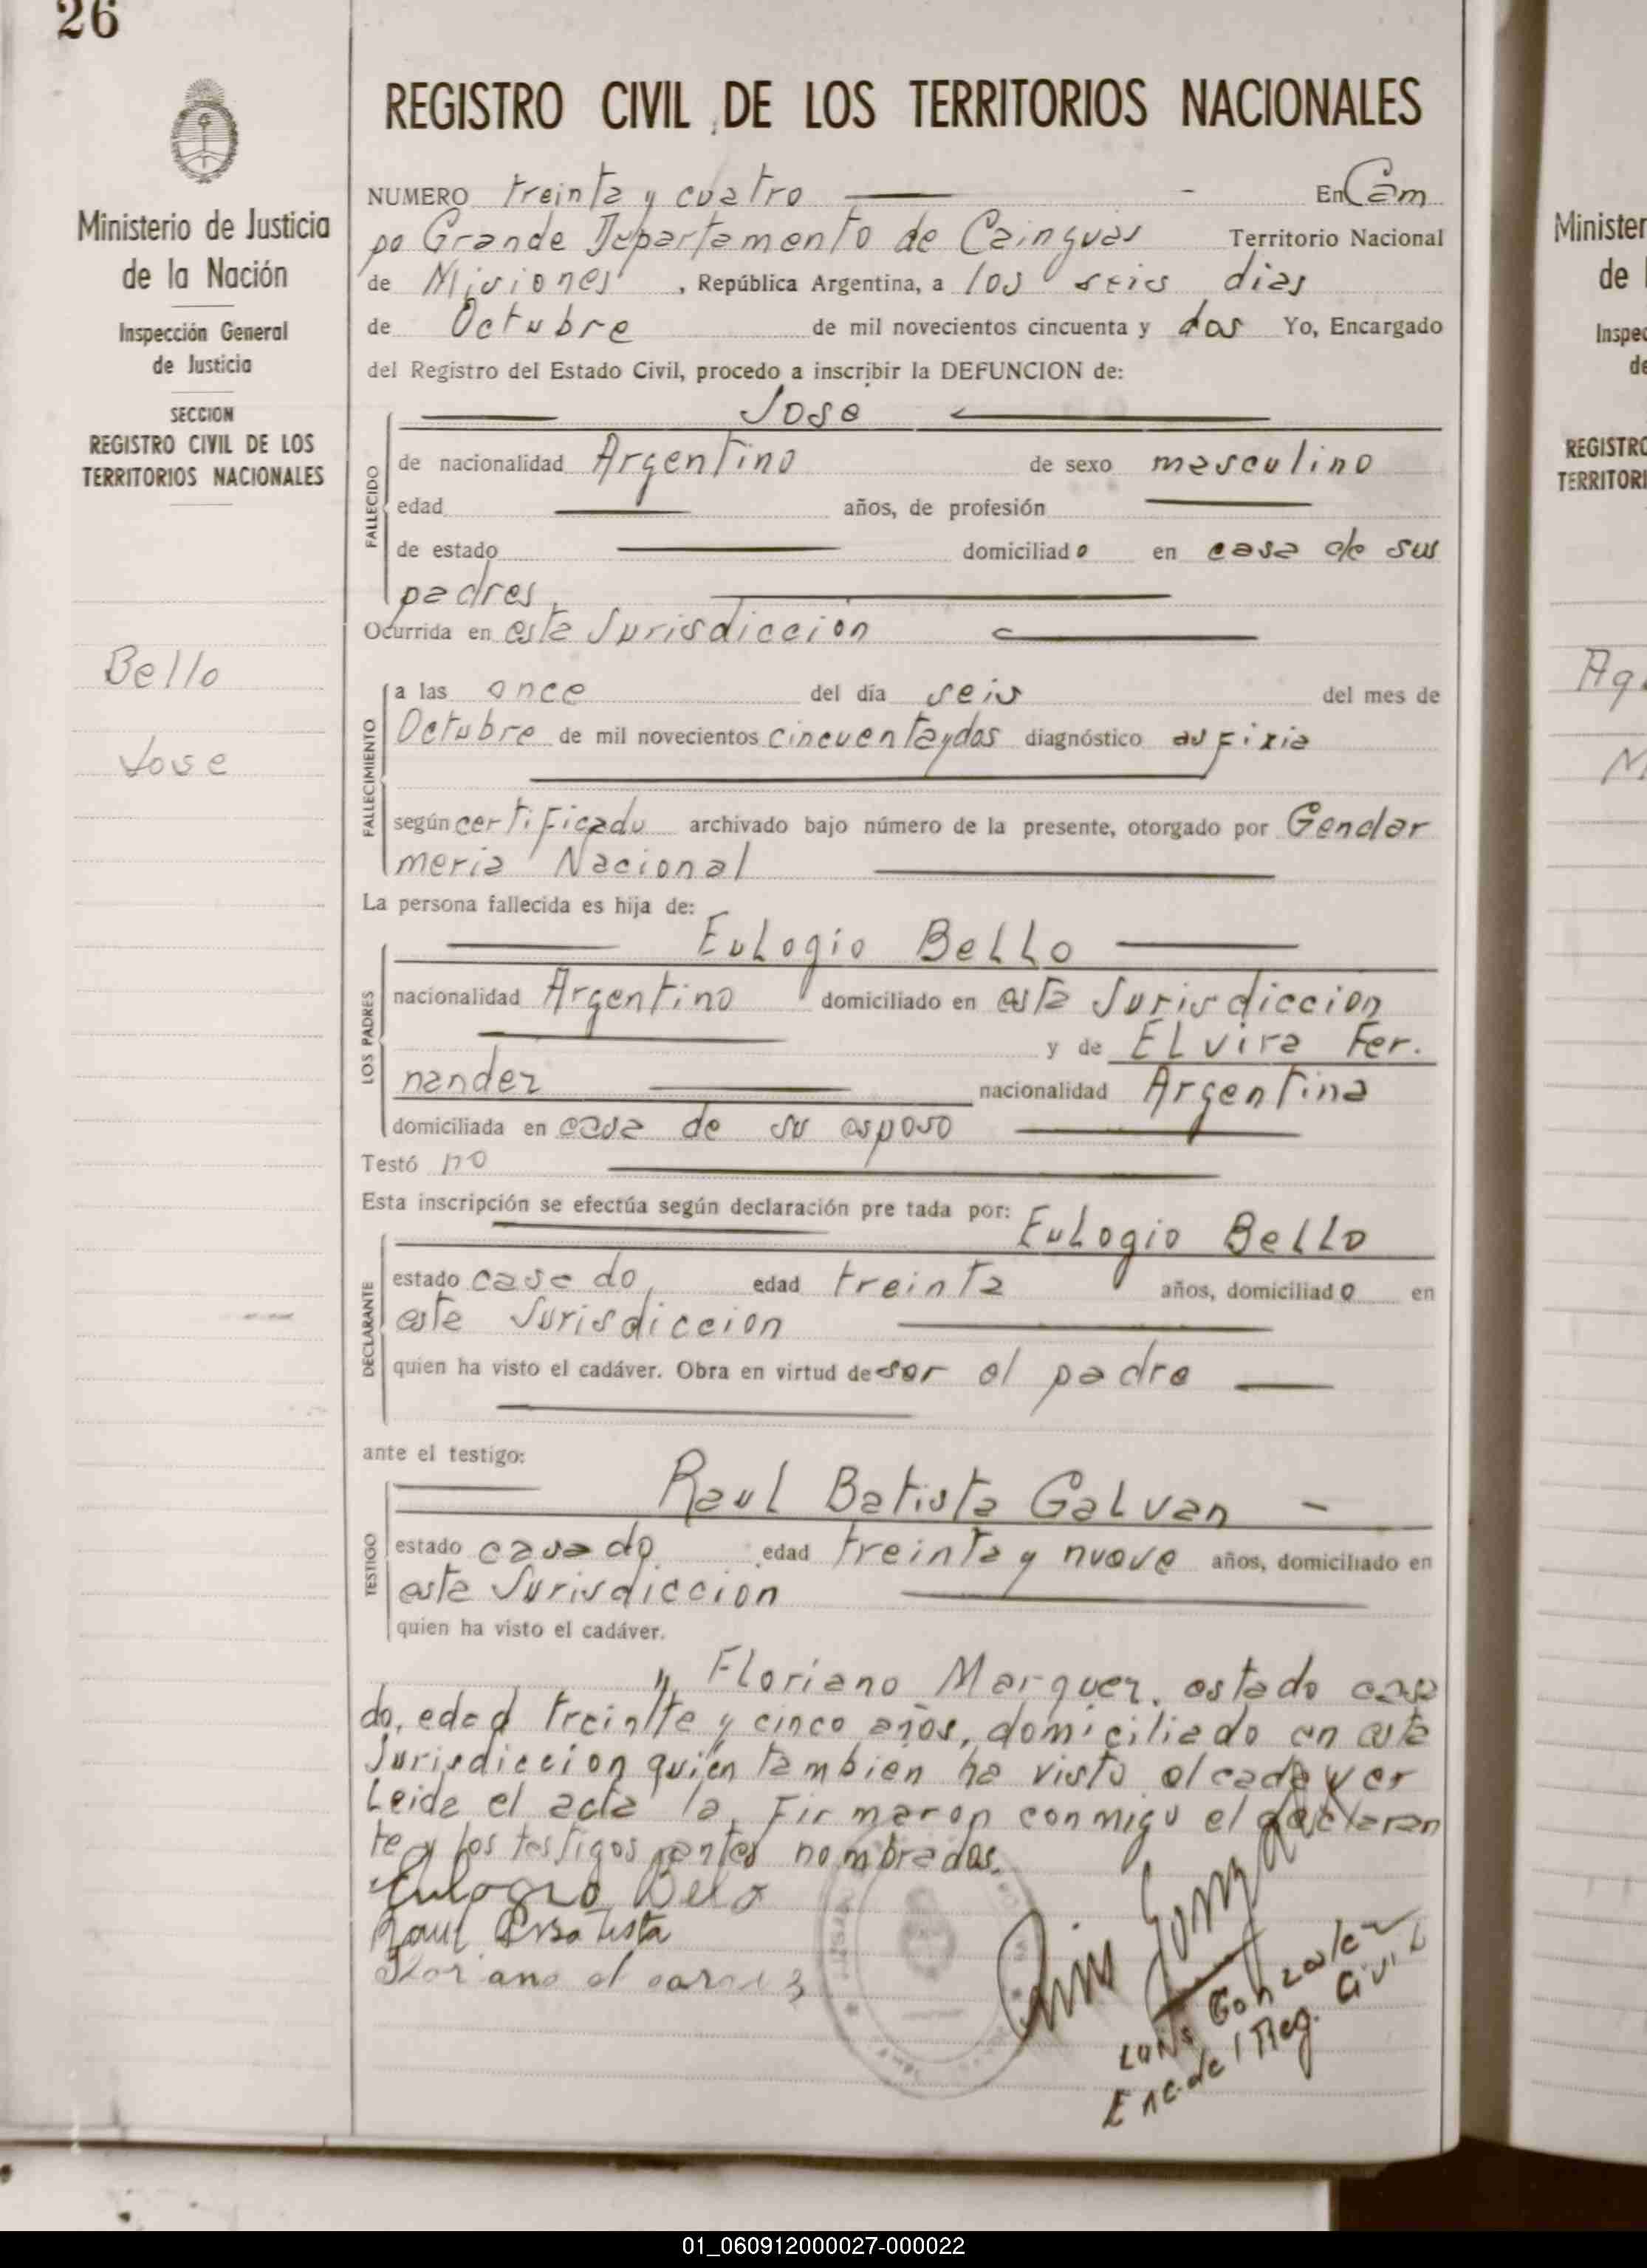 26
Ministerio de Justicia
de la Nación
Inspección General
de Justicia
SECCION
REGISTRO CIVIL DE LOS
TERRITORIOS NACIONALES
Bello
Jose
REGISTRO CIVIL DE LOS TERRITORIOS NACIONALES
NUMERO treinta y cuatro — - En Cam
po Grande Departamento de Cainguas Territorio Nacional
de Misiones, República Argentina, a los seis dias
de Octubre de mil novecientos cincuenta y dos Yo, Encargado
del Registro del Estado Civil, procedo a inscribir la DEFUNCION de:
Jose
FALLECIDO
de nacionalidad Argentino de sexo masculino
edad — años, de profesión —
de estado — domiciliado en casa de sus
padres
Ocurrida en esta Jurisdiccion
FALLECIMIENTO
a las once del día seis del mes de
Octubre de mil novecientos cincuentaydos diagnóstico asfixia
según certificado archivado bajo número de la presente, otorgado por Gendar
meria Nacional
La persona fallecida es hija de:
LOS PADRES
Eulogio Bello
nacionalidad Argentino domiciliado en esta Jurisdiccion
y de Elvira Fer.
nandez nacionalidad Argentina
domiciliada en casa de su esposo
Testó no
Esta inscripción se efectúa según declaración pre tada por:
DECLARANTE
Eulogio Bello
estado casado, edad treinta años, domiciliado en
esta Jurisdiccion
quien ha visto el cadáver. Obra en virtud de ser el padre
ante el testigo:
TESTIGO
Raul Batista Galvan -
estado casado edad treinta y nueve años, domiciliado en
esta Jurisdiccion
quien ha visto el cadáver.
" Floriano Marquez, estado casa
do, edad treintte y cinco años, domiciliado en esta
Jurisdiccion quien tambien ha visto el cadaver
Leida el acta la firmaron conmigo el declaran
te y los testigos antes nombrados.
Eulogio Belo
Raul Batista
Luis Gonzalez
Enc. del Reg. Civil
Minister
de
Inspec
de
REGISTRO
TERRITORI
01_060912000027-000022